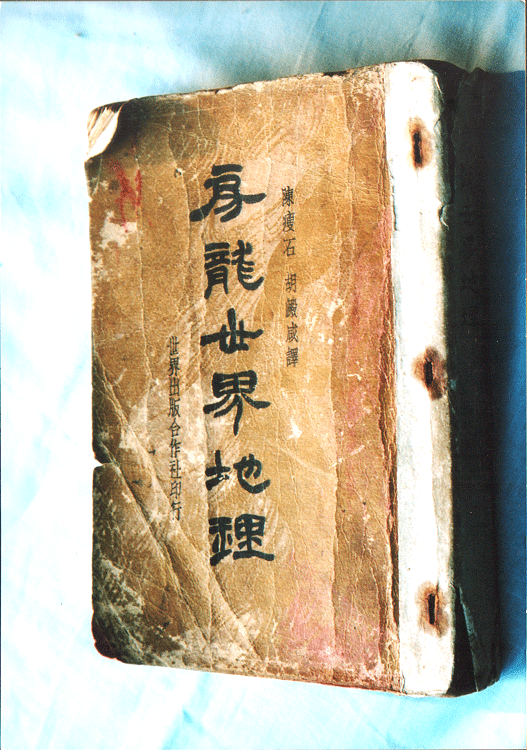 陳瘦石 胡㵐咸譯
房龍世界地理
世界出版合作社印行